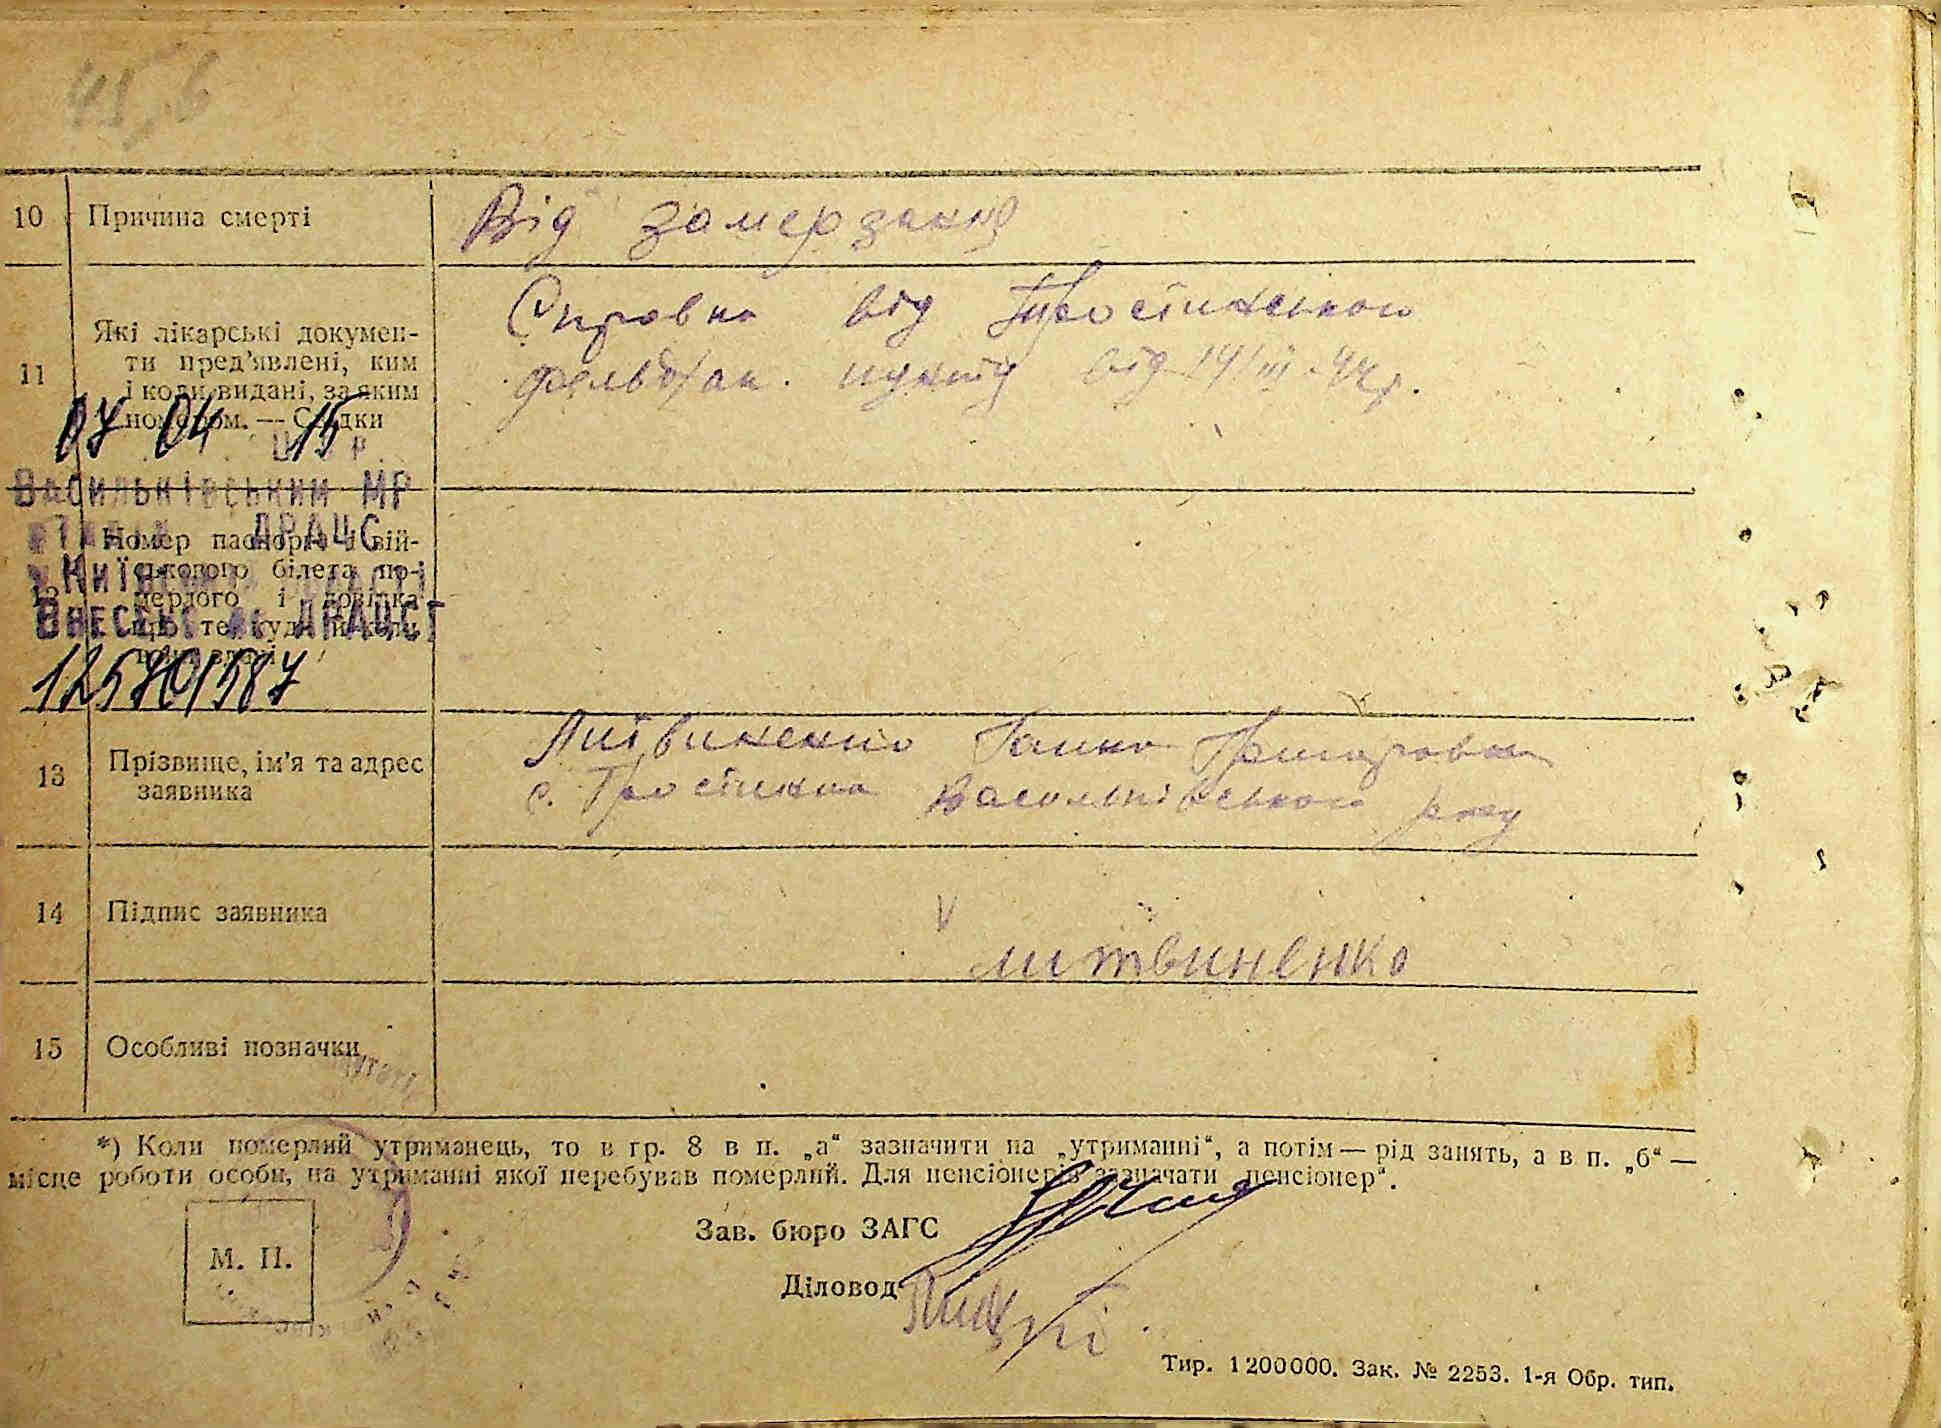 10 Причина смерті Від замерзання
11 Які лікарські докумен-
ти пред'явлені, ким
і коли видані, за яким
номером. — Слідки
Справка від Тростинського
фельд/ак. пункту від 14/III-44р.
07 04 15 р.
Васильківський МР
ДРАЦС
12 Номер паспорта і вій-
ськового білета по-
мерлого і довідка
Внесено до ДРАЦСГ
125701587
13 Прізвище, ім'я та адрес
заявника
Литвиненко Ганна Григоровна
с. Тростинка Васильківського р-ну
14 Підпис заявника
Литвиненко
15 Особливі позначки
*) Коли померлий утриманець, то в гр. 8 в п. „а“ зазначити на „утриманні“, а потім — рід занять, а в п. „б“ —
місце роботи особи, на утриманні якої перебував померлий. Для пенсіонерів зазначати „пенсіонер“.
М. П.
Зав. бюро ЗАГС
Діловод
Тир. 1200000. Зак. № 2253. 1-я Обр. тип.